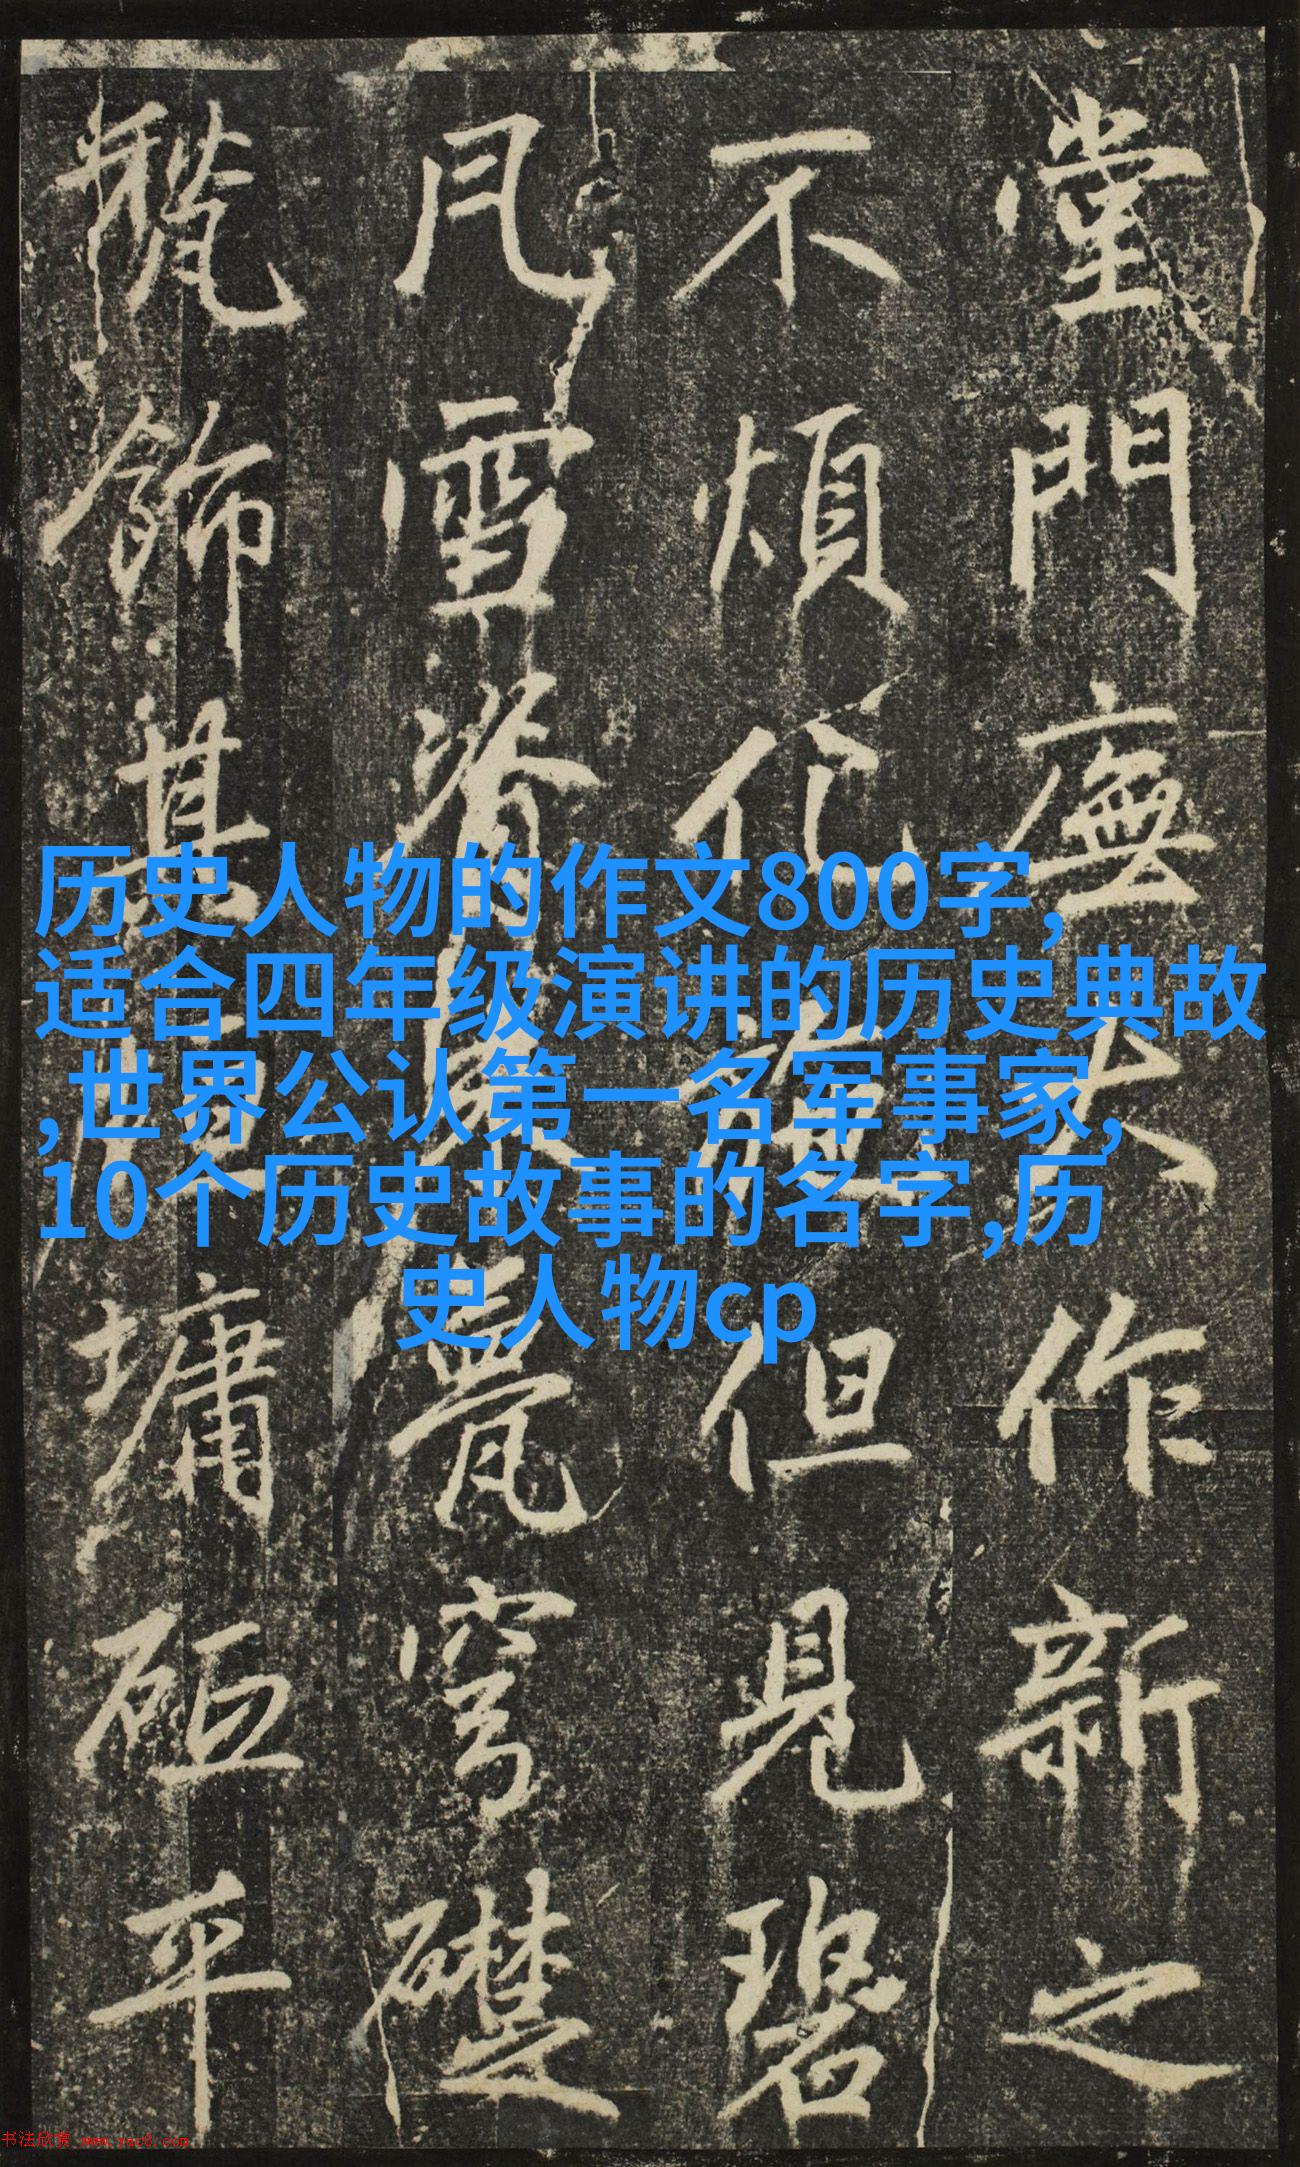 历史人物的作文800字,
适合四年级演讲的历史典故
,世界公认第一名军事家,
10个历史故事的名字,历
史人物cp
堂門廡大作新之
不煩化但見碧
凡雪脊甍穹礎
飾其垣墉平
书法欣赏 www.yac8.com